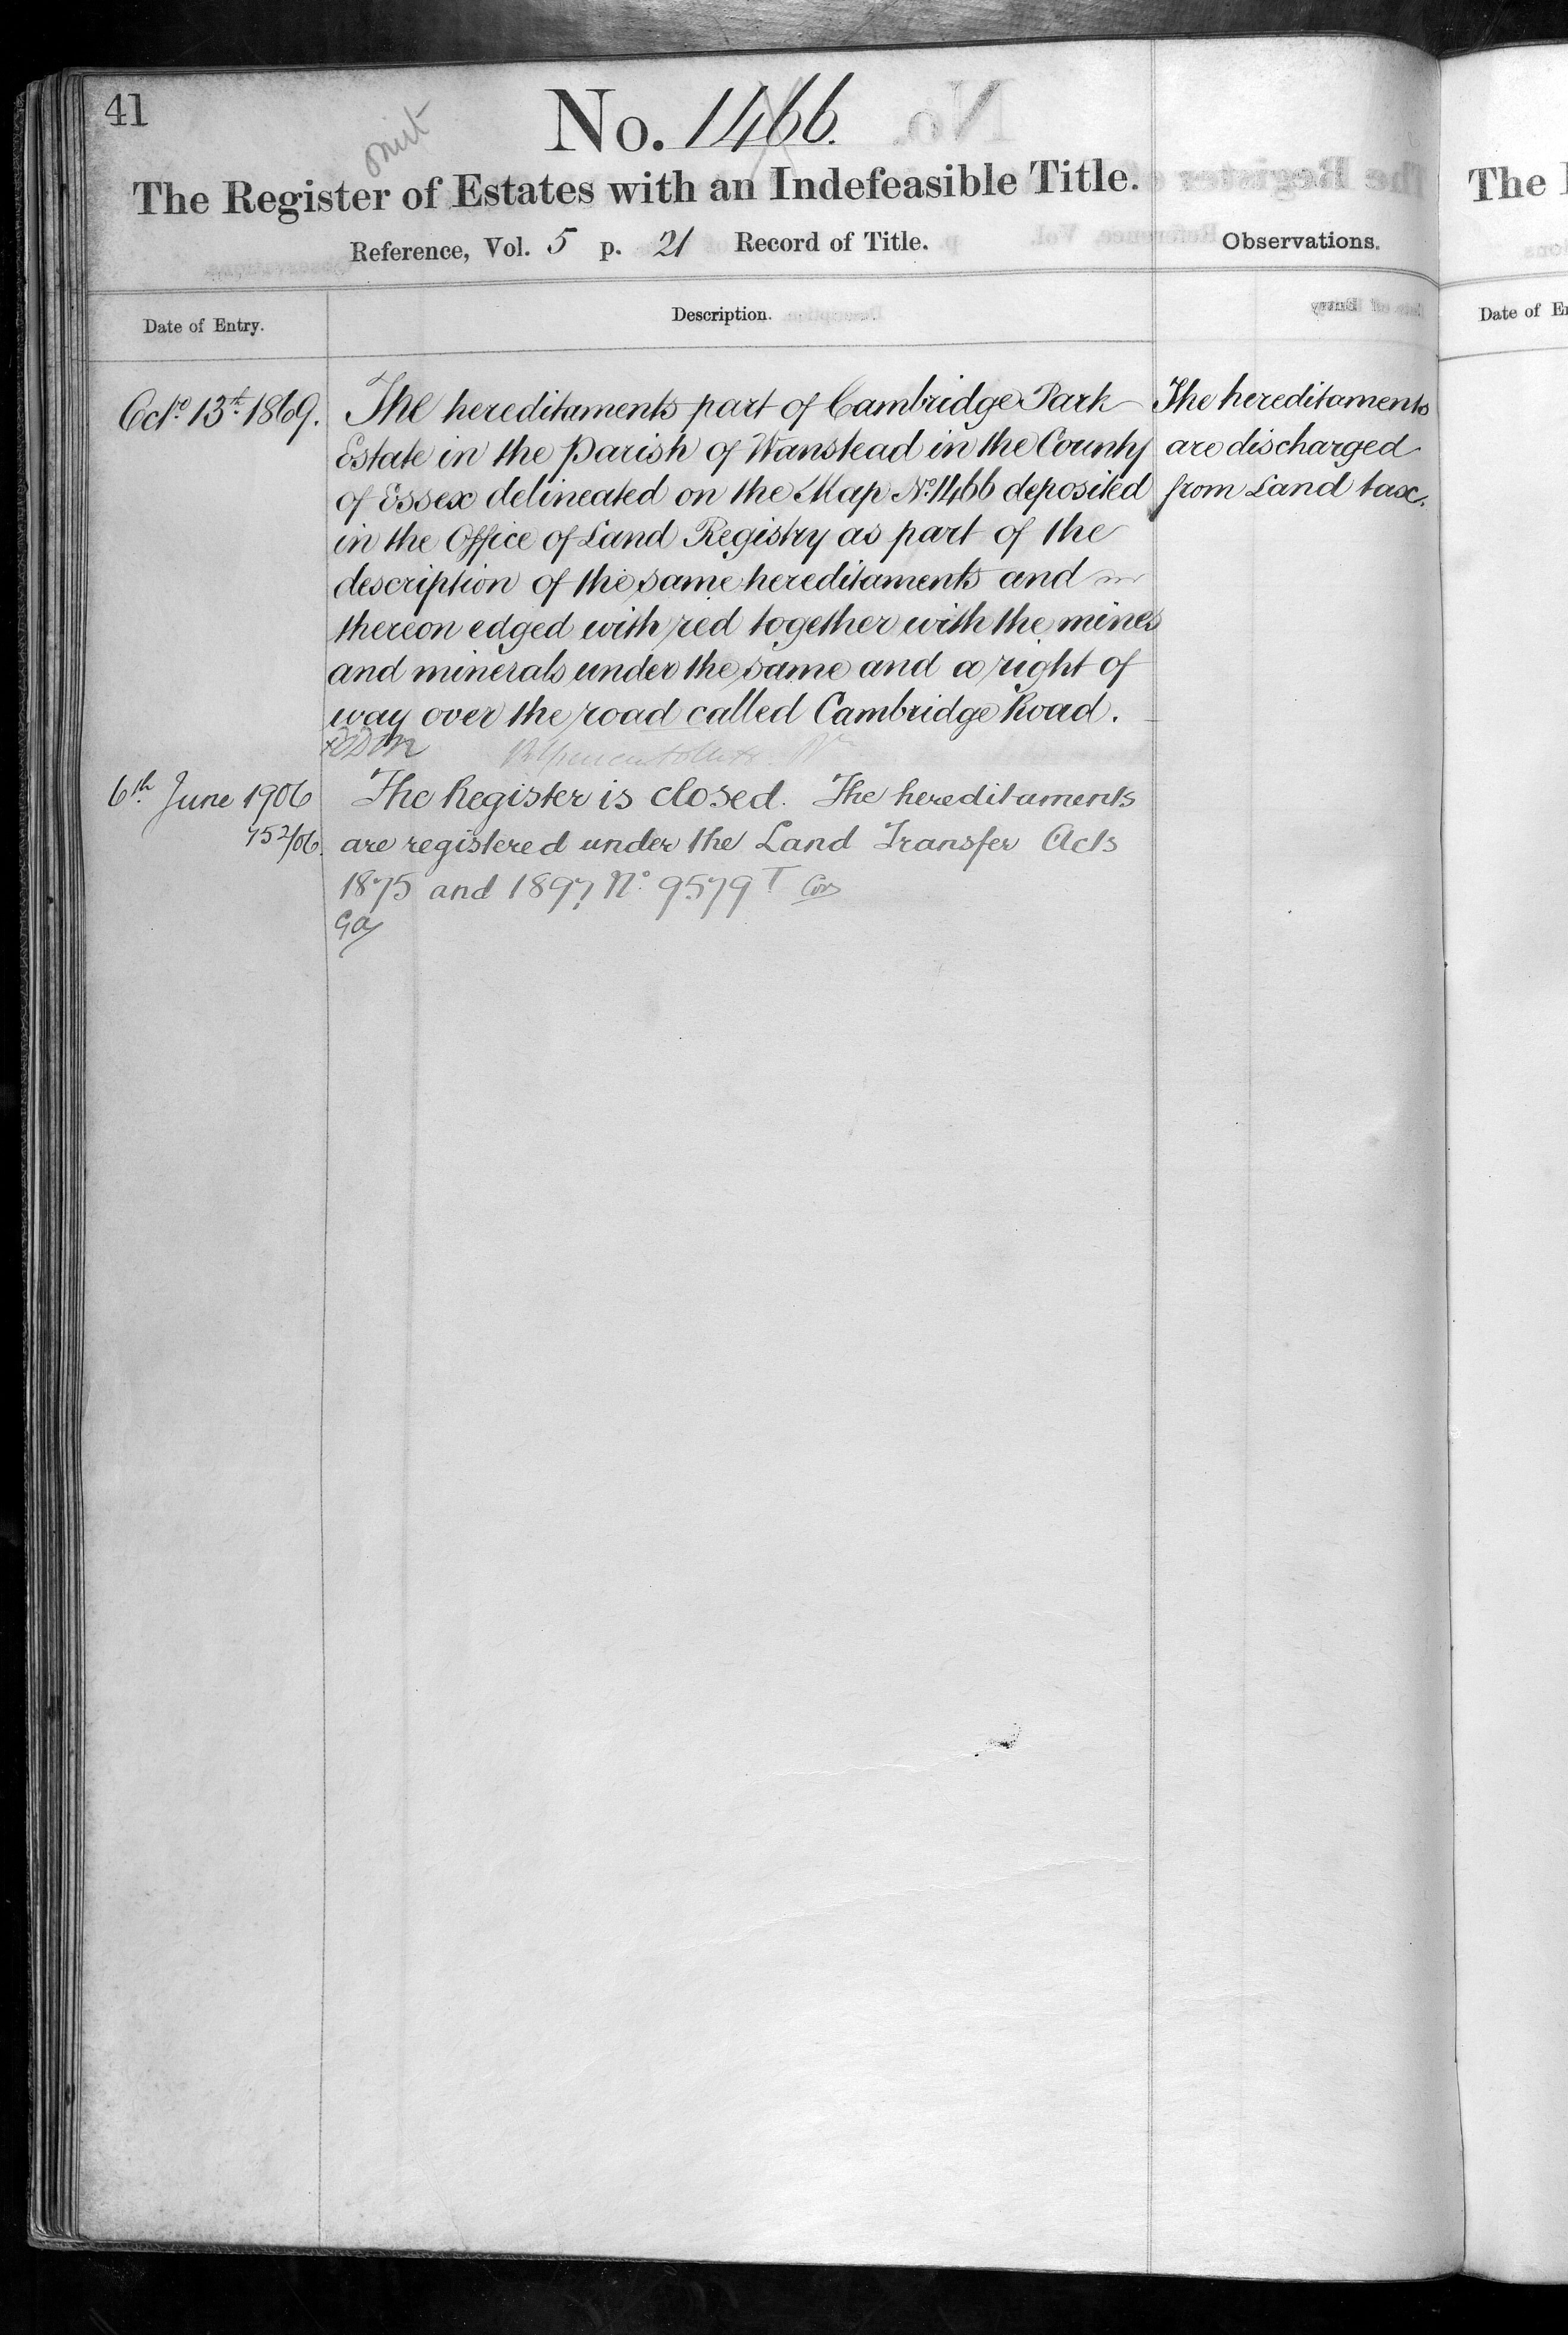 41
omit
No. 1466.
The Register of Estates with an Indefeasible Title.
Reference, Vol. 5 p. 21 Record of Title.
Observations.
Date of Entry.
Description.
Octr. 13th. 1869.
The hereditaments part of Cambridge Park
Estate in the Parish of Wanstead in the County
of Essex delineated on the Map No. 1466 deposited
in the Office of Land Registry as part of the
description of the same hereditaments and
thereon edged with red together with the mines
and minerals under the same and a right of
way over the road called Cambridge Road.
The hereditaments
are discharged
from Land tax.
6th June 1906
752/06.
The Register is closed. The hereditaments
are registered under the Land Transfer Acts
1875 and 1897, No. 9579 T
The
Date of